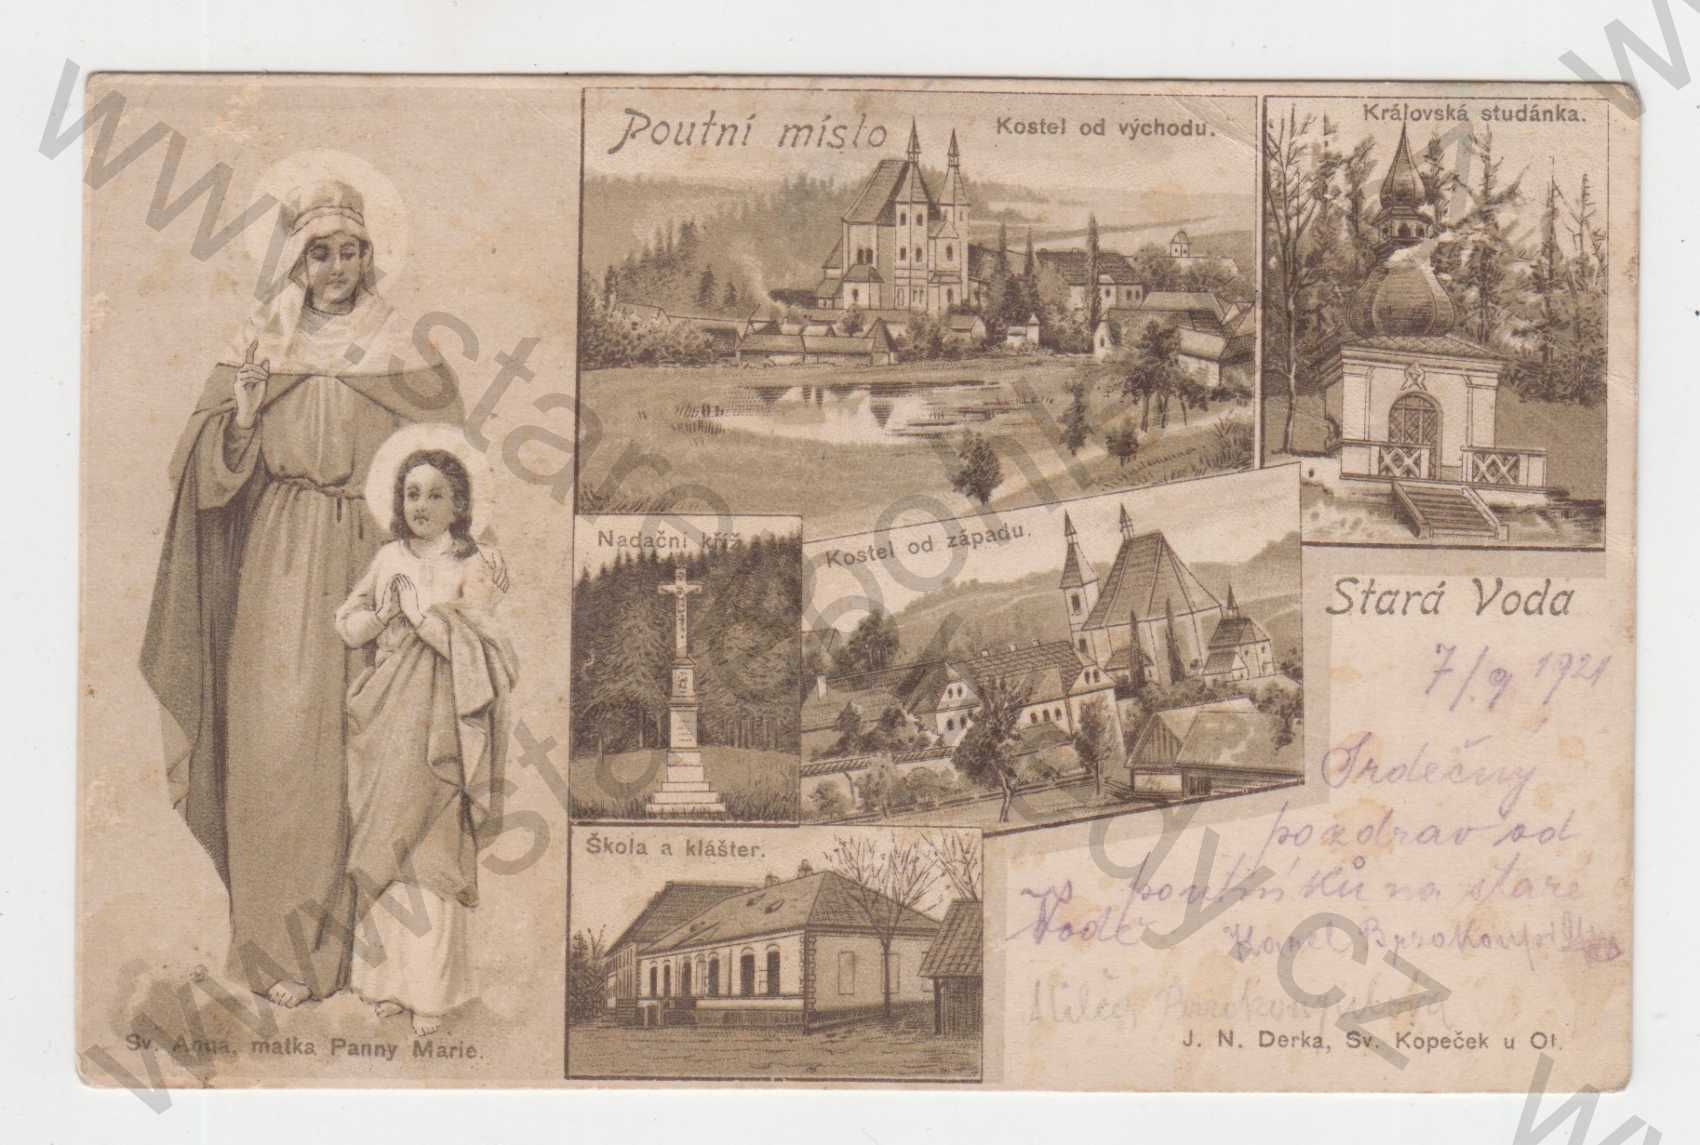 Poutní místo
Kostel od východu.
Královská studánka.
Nadační kříž
Kostel od západu.
Stará Voda
7/9 1921
Srdečný
pozdrav od
poutníků na staré
Vodě
Karel
Škola a klášter.
Sv. Anna, matka Panny Marie.
J. N. Derka, Sv. Kopeček u Ol.
www.starepohledy.cz
www.starepohledy.cz